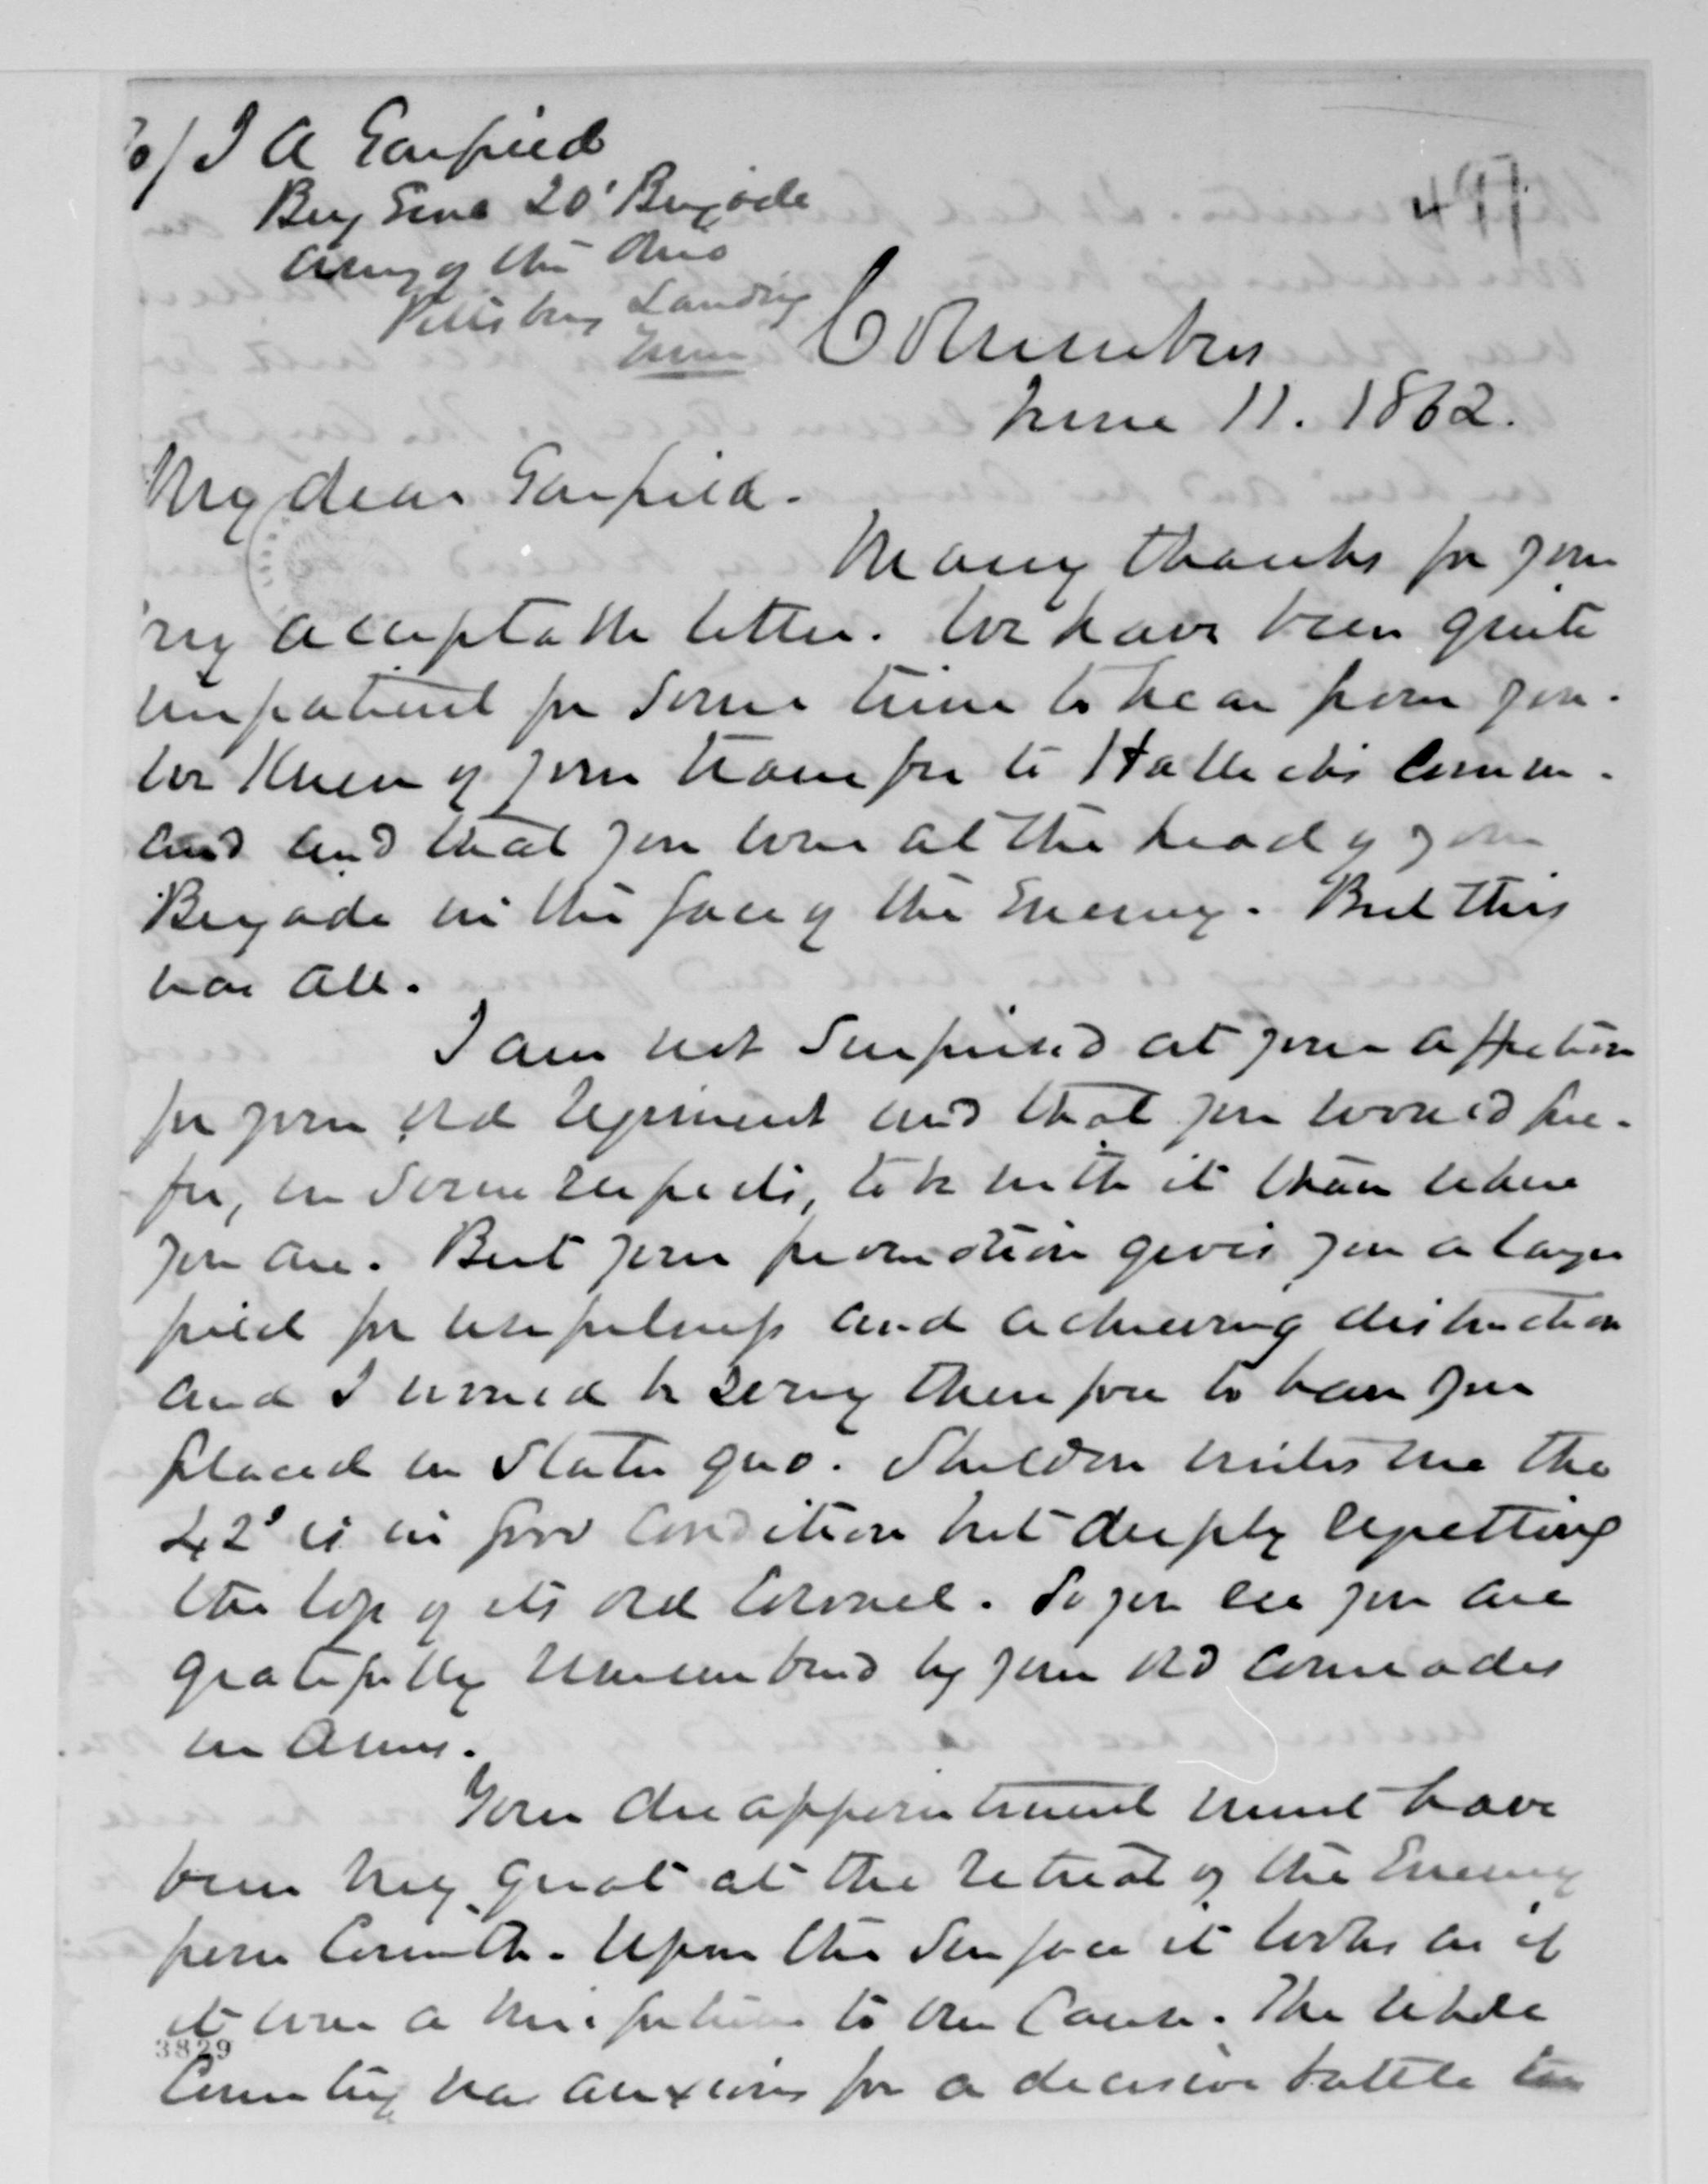 To/ J A Garfield
Brig Genl 20' Brigade
Army of the Ohio
Pittsburg Landing
Tenn
491
Columbus
June 11. 1862.
My dear Garfield.
Many thanks for your
very acceptable letter. We have been quite
impatient for some time to hear from you.
We knew of your transfer to Hallecks Comm-
and and that you were at the head of your
Brigade in the face of the Enemy. But this
was all.
I am not surprised at your affection
for your old regiment and that you would pre-
fer, in some respects, to be with it than where
you are. But your promotion gives you a larger
field for usefulness and achieving distinction
and I would be sorry therefore to have you
placed in statu quo. Sheldon writes me the
42' is in good condition but deeply regretting
the loss of its old Colonel. So you see you are
gratefully remembered by your old Comrades
in Arms.
Your disappointment must have
been very great at the retreat of the Enemy
from Corinth. Upon the surface it looks as if
it were a misfortune to our Cause. The whole
3829
Country was anxious for a decisive battle